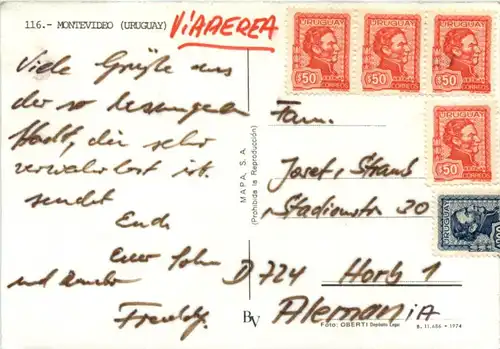 116.- MONTEVIDEO (URUGUAY)
VIAAEREA
Viele Grüße aus
der so
Stadt, die sehr
verwahrlost ist.
sendet
Euch
Euer Sohn
und
Freddy
MAPA, S. A.
(Prohibida la Reproducción)
Fam.
Josef, Straub
Stadionstr 30
D 724 Horb 1
AlemaniA
BV
Foto: OBERTI Depósito Legal B. 11.686 - 1974
URUGUAY
$50
CORREOS
URUGUAY
$50
CORREOS
URUGUAY
$50
CORREOS
URUGUAY
$50
CORREOS
URUGUAY